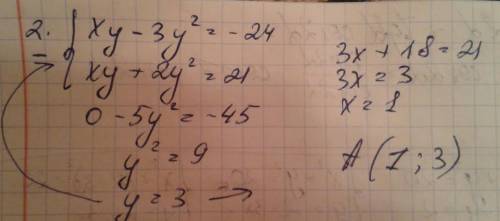 2. xy - 3y² = -24
xy + 2y² = 21
0 - 5y² = -45
y² = 9
y = 3 →
3x + 18 = 21
3x = 3
x = 1
A (1; 3)